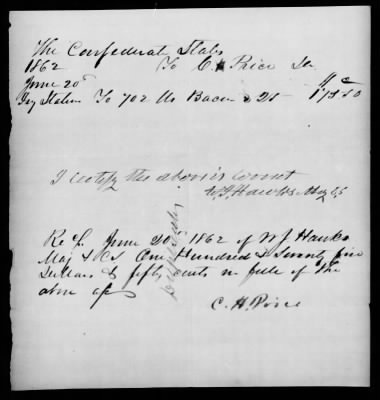 The Confederat States
1862 To C H Price Dr
June 20
To 702 lbs Bacon 25 175.50
I certify the above is correct
W J Hawks Maj CS
Rec'd June 20, 1862 of W J Hawks
Maj & CS One Hundred & Seventy five
Dollars & fifty cents in full of the
above a/c
C. H. Price